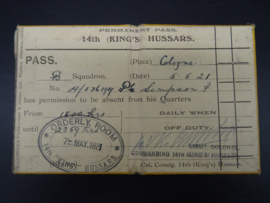 PERMANENT PASS.
14th (KING'S) HUSSARS.
PASS.
(Place) Cologne
B Squadron.
(Date) 5.5.21
No. Pte Simpson F
has permission to be absent from his Quarters
From 1800 hrs DAILY WHEN
to 2359 hrs OFF DUTY.
ORDERLY ROOM
MAY 1921
14th (KING'S) HUSSARS
LIEUT COLONEL
COMMANDING 14TH KING'S HUSSARS
Col. Comdg. 14th (King's) Hussars.